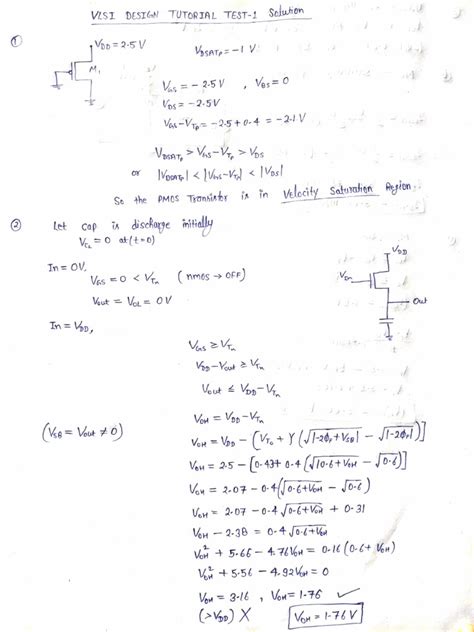 VLSI DESIGN TUTORIAL TEST-1 Solution
①
V_DD = 2.5V
M₁
V_DSATp = -1 V
V_GS = -2.5V , V_BS = 0
V_DS = -2.5V
V_GS - V_Tp = -2.5+0.4 = -2.1V
V_DSATp > V_GS - V_Tp > V_DS
or |V_DSATp| < |V_GS - V_Tp| < |V_DS|
So the PMOS Transistor is in Velocity Saturation Region.
② Let cap is discharge initially
V_CL = 0 at (t=0)
In = 0V,
V_GS = 0 < V_Tn (nmos → OFF)
V_out = V_OL = 0V
V_DD
V_Dn
Out
In = V_DD,
V_GS ≥ V_Tn
V_DD - V_out ≥ V_Tn
V_out ≤ V_DD - V_Tn
V_OH = V_DD - V_Tn
(V_SB = V_out ≠ 0)
V_OH = V_DD - [V_To + γ(√|-2φ_F + V_SB| - √|-2φ_F|)]
V_OH = 2.5 - [0.43 + 0.4(√|0.6+V_OH| - √0.6)]
V_OH = 2.07 - 0.4(√0.6+V_OH - √0.6)
V_OH = 2.07 - 0.4√0.6+V_OH + 0.31
V_OH - 2.38 = 0.4√0.6+V_OH
V_OH² + 5.66 - 4.76V_OH = 0.16(0.6+V_OH)
V_OH² + 5.56 - 4.92V_OH = 0
V_OH = 3.16 , V_OH = 1.76 ✓
(>V_DD) X
V_OH = 1.76 V